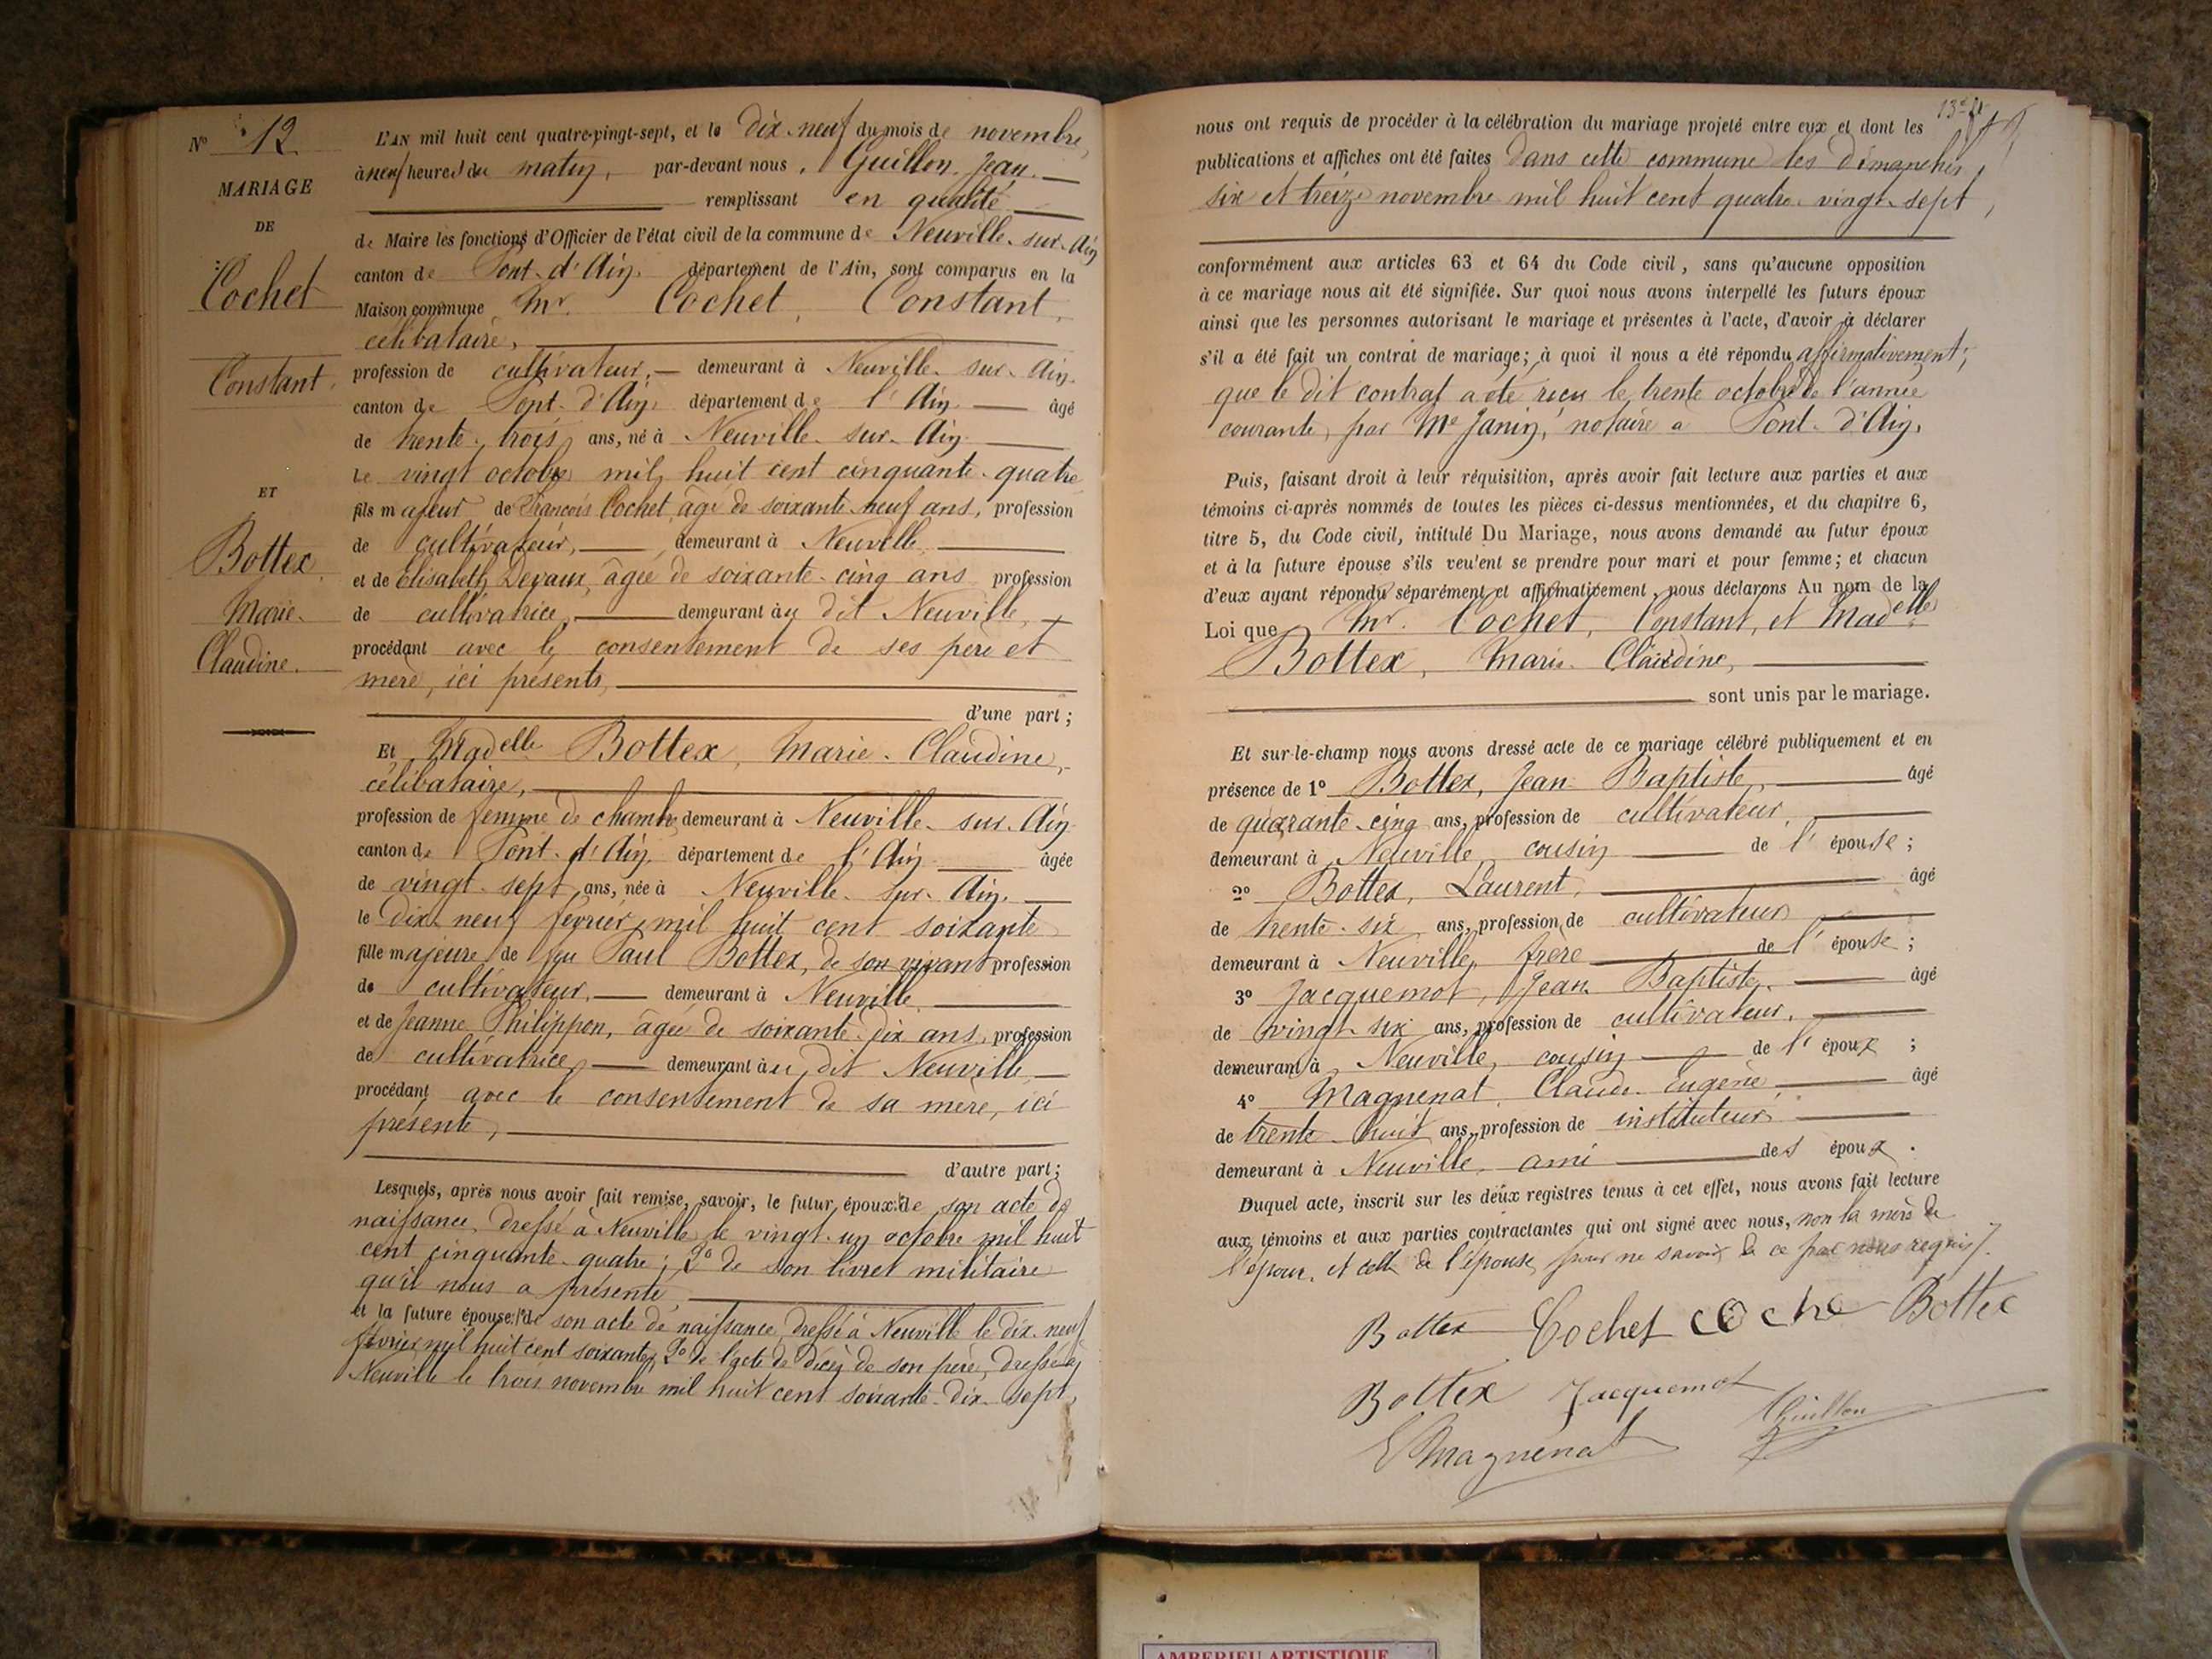 N° 12
MARIAGE
DE
Cochet
Constant
ET
Bottex
Marie
Claudine.
L'AN mil huit cent quatre-vingt-sept, et le dix-neuf du mois de novembre,
à neuf heures du matin, par-devant nous, Guillon, Jean
remplissant en qualité
de Maire les fonctions d'Officier de l'état civil de la commune de Neuville-sur-Ain
canton de Pont-d'Ain, département de l'Ain, sont comparus en la
Maison commune Mr. Cochet, Constant,
célibataire,
profession de cultivateur, demeurant à Neuville-sur-Ain.
canton de Pont-d'Ain, département de l'Ain âgé
de trente-trois ans, né à Neuville-sur-Ain
Le vingt octobre mil huit cent cinquante-quatre
fils majeur de François Cochet, âgé de soixante-neuf ans, profession
de cultivateur, demeurant à Neuville
et de Elisabeth Devaux, âgée de soixante-cinq ans profession
de cultivatrice, demeurant àu dit Neuville,
procédant avec le consentement de ses père et
mère, ici présents,
d'une part;
Et Madelle Bottex, Marie-Claudine,
célibataire,
profession de femme de chambre demeurant à Neuville-sur-Ain
canton de Pont-d'Ain, département de l'Ain âgée
de vingt-sept ans, née à Neuville-sur-Ain.
le dix-neuf février mil huit cent soixante
fille majeure de feu Paul Bottex, de son vivant profession
de cultivateur, demeurant à Neuville
et de Jeanne Philippon, âgée de soixante-dix ans, profession
de cultivatrice, demeurant àu dit Neuville
procédant avec le consentement de sa mère, ici
présente,
d'autre part;
Lesquels, après nous avoir fait remise, savoir, le futur époux: de son acte de
naissance, dressé à Neuville le vingt-un octobre mil huit
cent cinquante-quatre; 2° de son livret militaire
qu'il nous a présenté,
et la future épouse: 1° de son acte de naissance, dressé à Neuville le dix-neuf
février mil huit cent soixante; 2° de l'acte de décès de son père, dressé à
Neuville le trois novembre mil huit cent soixante-dix-sept,
nous ont requis de procéder à la célébration du mariage projeté entre eux et dont les
publications et affiches ont été faites dans cette commune les dimanches
six et treize novembre mil huit cent quatre-vingt-sept,
conformément aux articles 63 et 64 du Code civil, sans qu'aucune opposition
à ce mariage nous ait été signifiée. Sur quoi nous avons interpellé les futurs époux
ainsi que les personnes autorisant le mariage et présentes à l'acte, d'avoir à déclarer
s'il a été fait un contrat de mariage; à quoi il nous a été répondu affirmativement;
que le dit contrat a été reçu le trente octobre de l'année
courante, par Me Janin, notaire à Pont-d'Ain.
Puis, faisant droit à leur réquisition, après avoir fait lecture aux parties et aux
témoins ci-après nommés de toutes les pièces ci-dessus mentionnées, et du chapitre 6,
titre 5, du Code civil, intitulé Du Mariage, nous avons demandé au futur époux
et à la future épouse s'ils veulent se prendre pour mari et pour femme; et chacun
d'eux ayant répondu séparément et affirmativement, nous déclarons Au nom de la
Loi que Mr. Cochet, Constant, et Madelle
Bottex, Marie-Claudine,
sont unis par le mariage.
Et sur-le-champ nous avons dressé acte de ce mariage célébré publiquement et en
présence de 1° Bottex, Jean Baptiste, âgé
de quarante-cinq ans, profession de cultivateur
demeurant à Neuville cousin de l'épouse;
2° Bottex, Laurent, âgé
de trente-six ans, profession de cultivateur
demeurant à Neuville, frère de l'épouse;
3° Jacquemot, Jean Baptiste, âgé
de vingt-six ans, profession de cultivateur,
demeurant à Neuville, cousin de l'époux;
4° Magnenat, Claude-Eugène, âgé
de trente-huit ans, profession de instituteur
demeurant à Neuville, ami des époux.
Duquel acte, inscrit sur les deux registres tenus à cet effet, nous avons fait lecture
aux témoins et aux parties contractantes qui ont signé avec nous, non la mère de
l'époux, et celle de l'épouse, pour ne savoir de ce par nous requis.
Bottex Cochet coche Bottex
Bottex Jacquemot
E Magnenat Guillon
AMBERIEU ARTISTIQUE